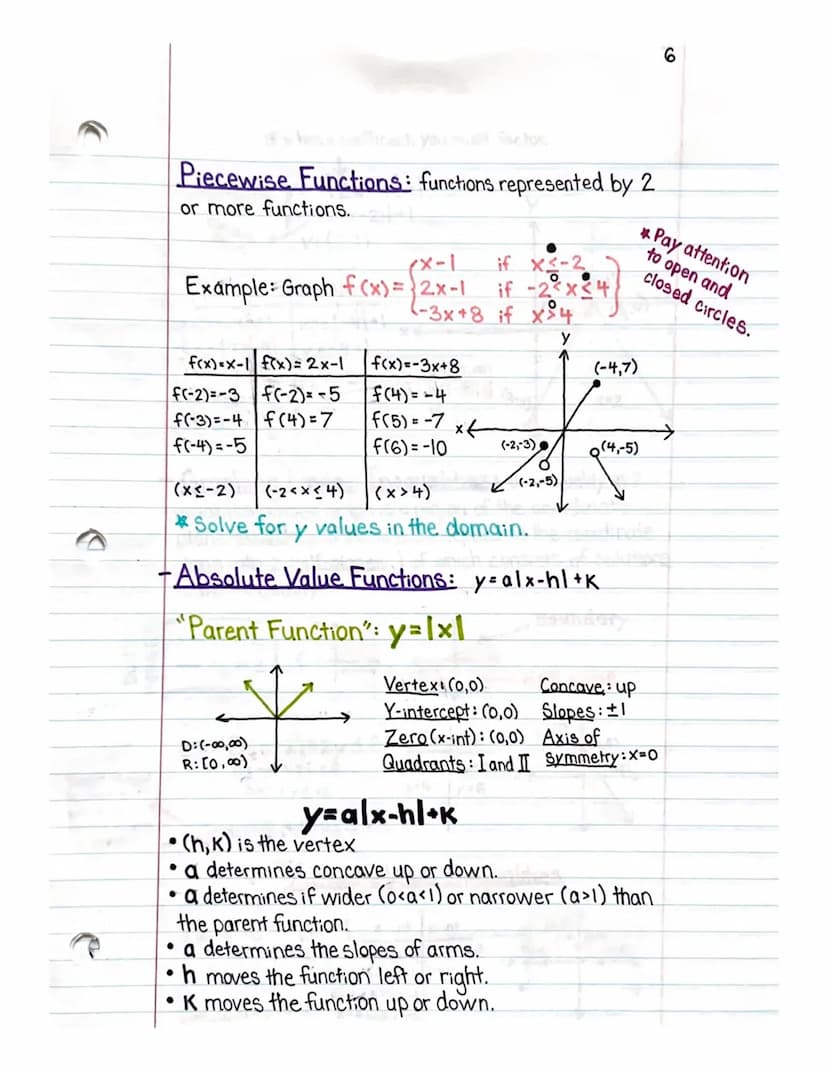 6
Piecewise Functions: functions represented by 2
or more functions.
* Pay attention
to open and
closed circles.
Example: Graph f(x) = { x-1 if x≤-2
2x-1 if -2<x≤4
-3x+8 if x>4 }
f(x)=x-1 | f(x)= 2x-1 | f(x)=-3x+8
f(-2)=-3 | f(-2)= -5 | f(4)= -4
f(-3)=-4 | f(4)=7 | f(5) = -7
f(-4)=-5 | | f(6)=-10
(x≤-2) | (-2<x≤4) | (x>4)
y
(-4,7)
x
(-2,-3)
(4,-5)
(-2,-5)
* Solve for y values in the domain.
- Absolute Value Functions: y=a|x-h|+K
"Parent Function": y=|x|
Vertex: (0,0) Concave: up
Y-intercept: (0,0) Slopes: ±1
Zero (x-int): (0,0) Axis of
Quadrants: I and II Symmetry: x=0
D:(-∞,∞)
R:[0,∞)
y=a|x-h|+K
• (h,K) is the vertex
• a determines concave up or down.
• a determines if wider (0<a<1) or narrower (a>1) than
the parent function.
• a determines the slopes of arms.
• h moves the function left or right.
• K moves the function up or down.